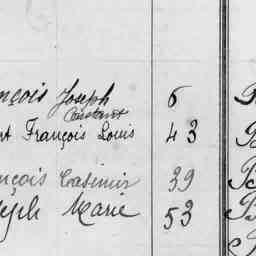 nçois Joseph 6
Constant
nt François Louis 43
nçois Casimir 39
seph Marie 53